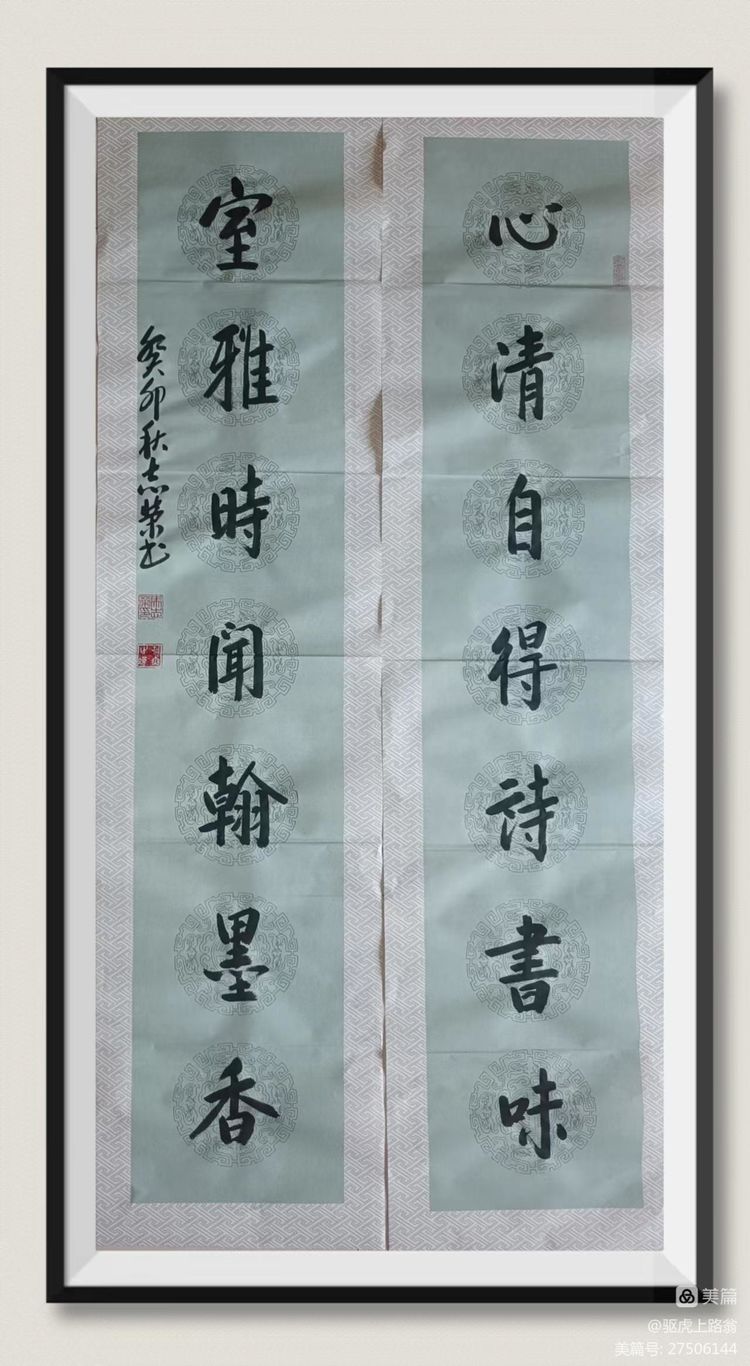 心清自得詩書味
室雅時闻翰墨香
癸卯秋志荣书
美篇
@驱虎上路翁
美篇号: 27506144